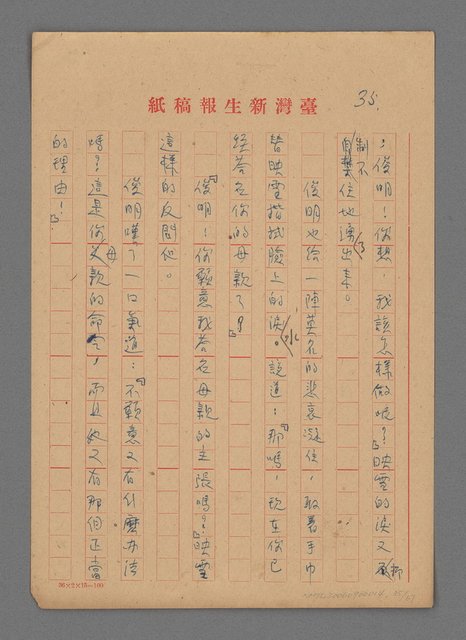 紙稿報生新灣臺
35.
：俊明！你想，我該怎樣做呢？」映雪的淚又抑
制不住地湧了出來。
俊明也給一陣莫名的悲哀凝住，取著手巾
替映雪揩拭臉上的淚水。說道：「那嗎，現在你已
經答應你的母親了？」
「俊明！你願意我答應母親的主張嗎？」映雪
這樣的反問他。
俊明嘆了一口氣道：「不願意又有什麼办法
嗎？這是你父母親的命令，而且她又有那個正當
的理由！」